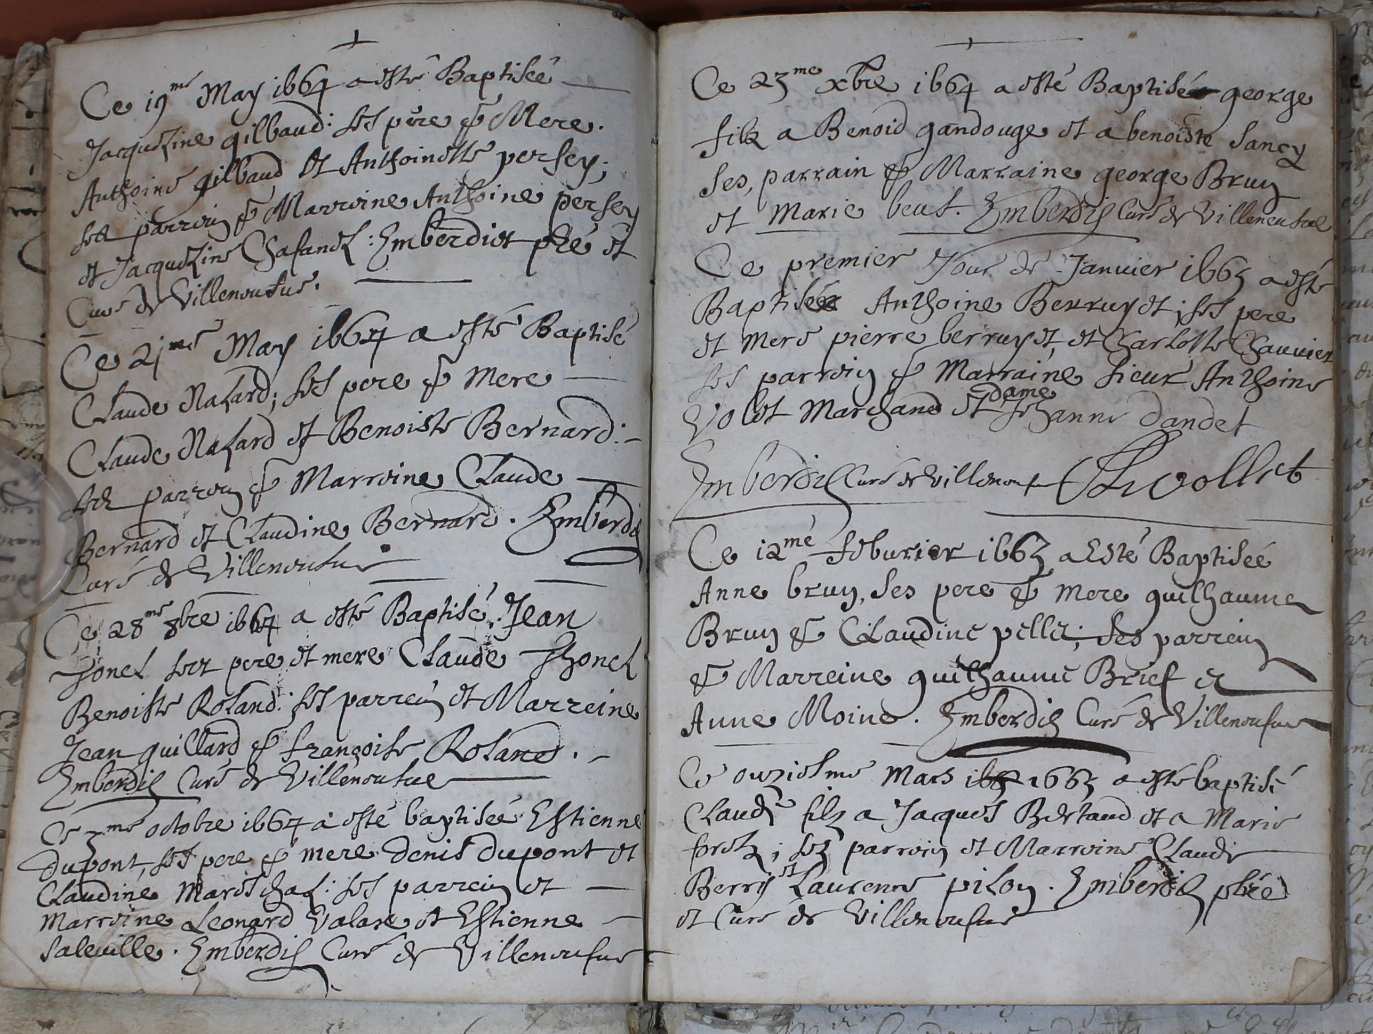 Ce 19me May 1664 a esté Baptiseé
Jacquezine gilbaud: ses pere & Mere.
Anthoine gilbaud Et Anthoinette persey;
ses parrain & Marraine Anthoine persey
et Jacquezine Emberdier pbre et
Curé de Villeneufue.
Ce 21me May 1664 a esté Baptisé
Claude Nasard; ses pere & Mere
Claude Nasard et Benoiste Bernard:
ses parrain & Marraine Claude
Bernard et Claudine Bernard. Emberdi
Curé de Villeneufue
Ce 28me 8bre 1664 a esté Baptisé Jean
Thonel pere et mere Claude Thonel
Benoiste Roland: ses parrein et Marreine
Jean guillard & françoise Roland.
Emberdis Curé de Villeneufue
Ce octobre 1664 a esté baptisé Estienne
dupont, ses pere & mere denis dupont et
Claudine Mareschal: ses parrein et
Marraine Leonard Valare et Estienne
Saleuille. Emberdis Curé de Villeneufue
Ce 23me xbre 1664 a esté Baptisé george
filz a Benoid gandouge et a benoiste Sancy
Ses, parrain & Marraine george Brun
et Marie beut. Emberdis Curé de Villeneufue
Ce premier Jour de Janvier 1665 a esté
Baptisé Anthoine Berruyet; ses pere
et mere pierre berruyet, et Charlotte Chauvier
ses parrain & Marraine sieur Anthoine
Volet Marchand et dame Jehanne dandet
Emberdis Curé de Villeneuf Avollet
Ce 12me feburier 1665 a Esté Baptiseé
Anne brun, Ses pere & mere guilhaume
Brun & Claudine pellet; ses parrein
& Marreine guilhaume Brief et
Anne Moine. Emberdis Curé de Villeneufue
Ce ouziesme Mars 1665 a esté baptisé
Claude filz a Jacques Bertaud et a Marie
; ses parrain et Marraine Claude
Berry et Laurenne pilon. Emberdis pbre
et Curé de Villeneufue